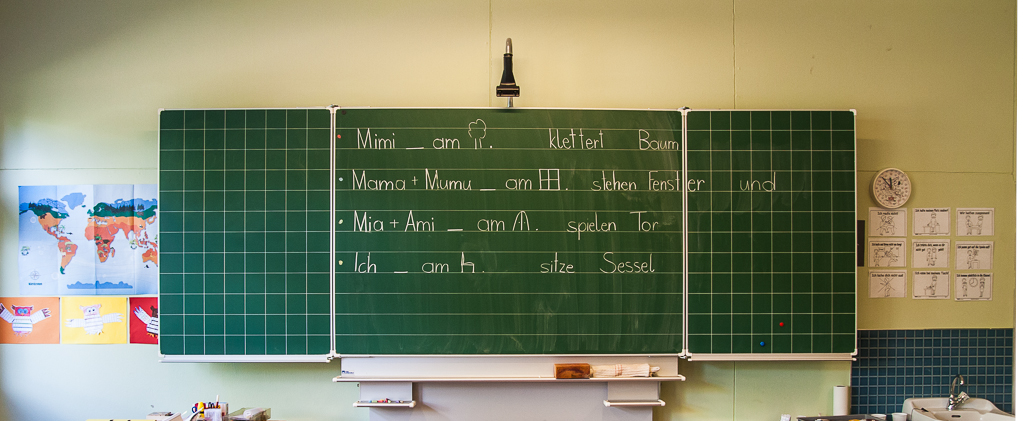 Mimi _ am . klettert Baum
Mama + Mumu _ am . stehen Fenster und
Mia + Ami _ am . spielen Tor
Ich _ am . sitze Sessel